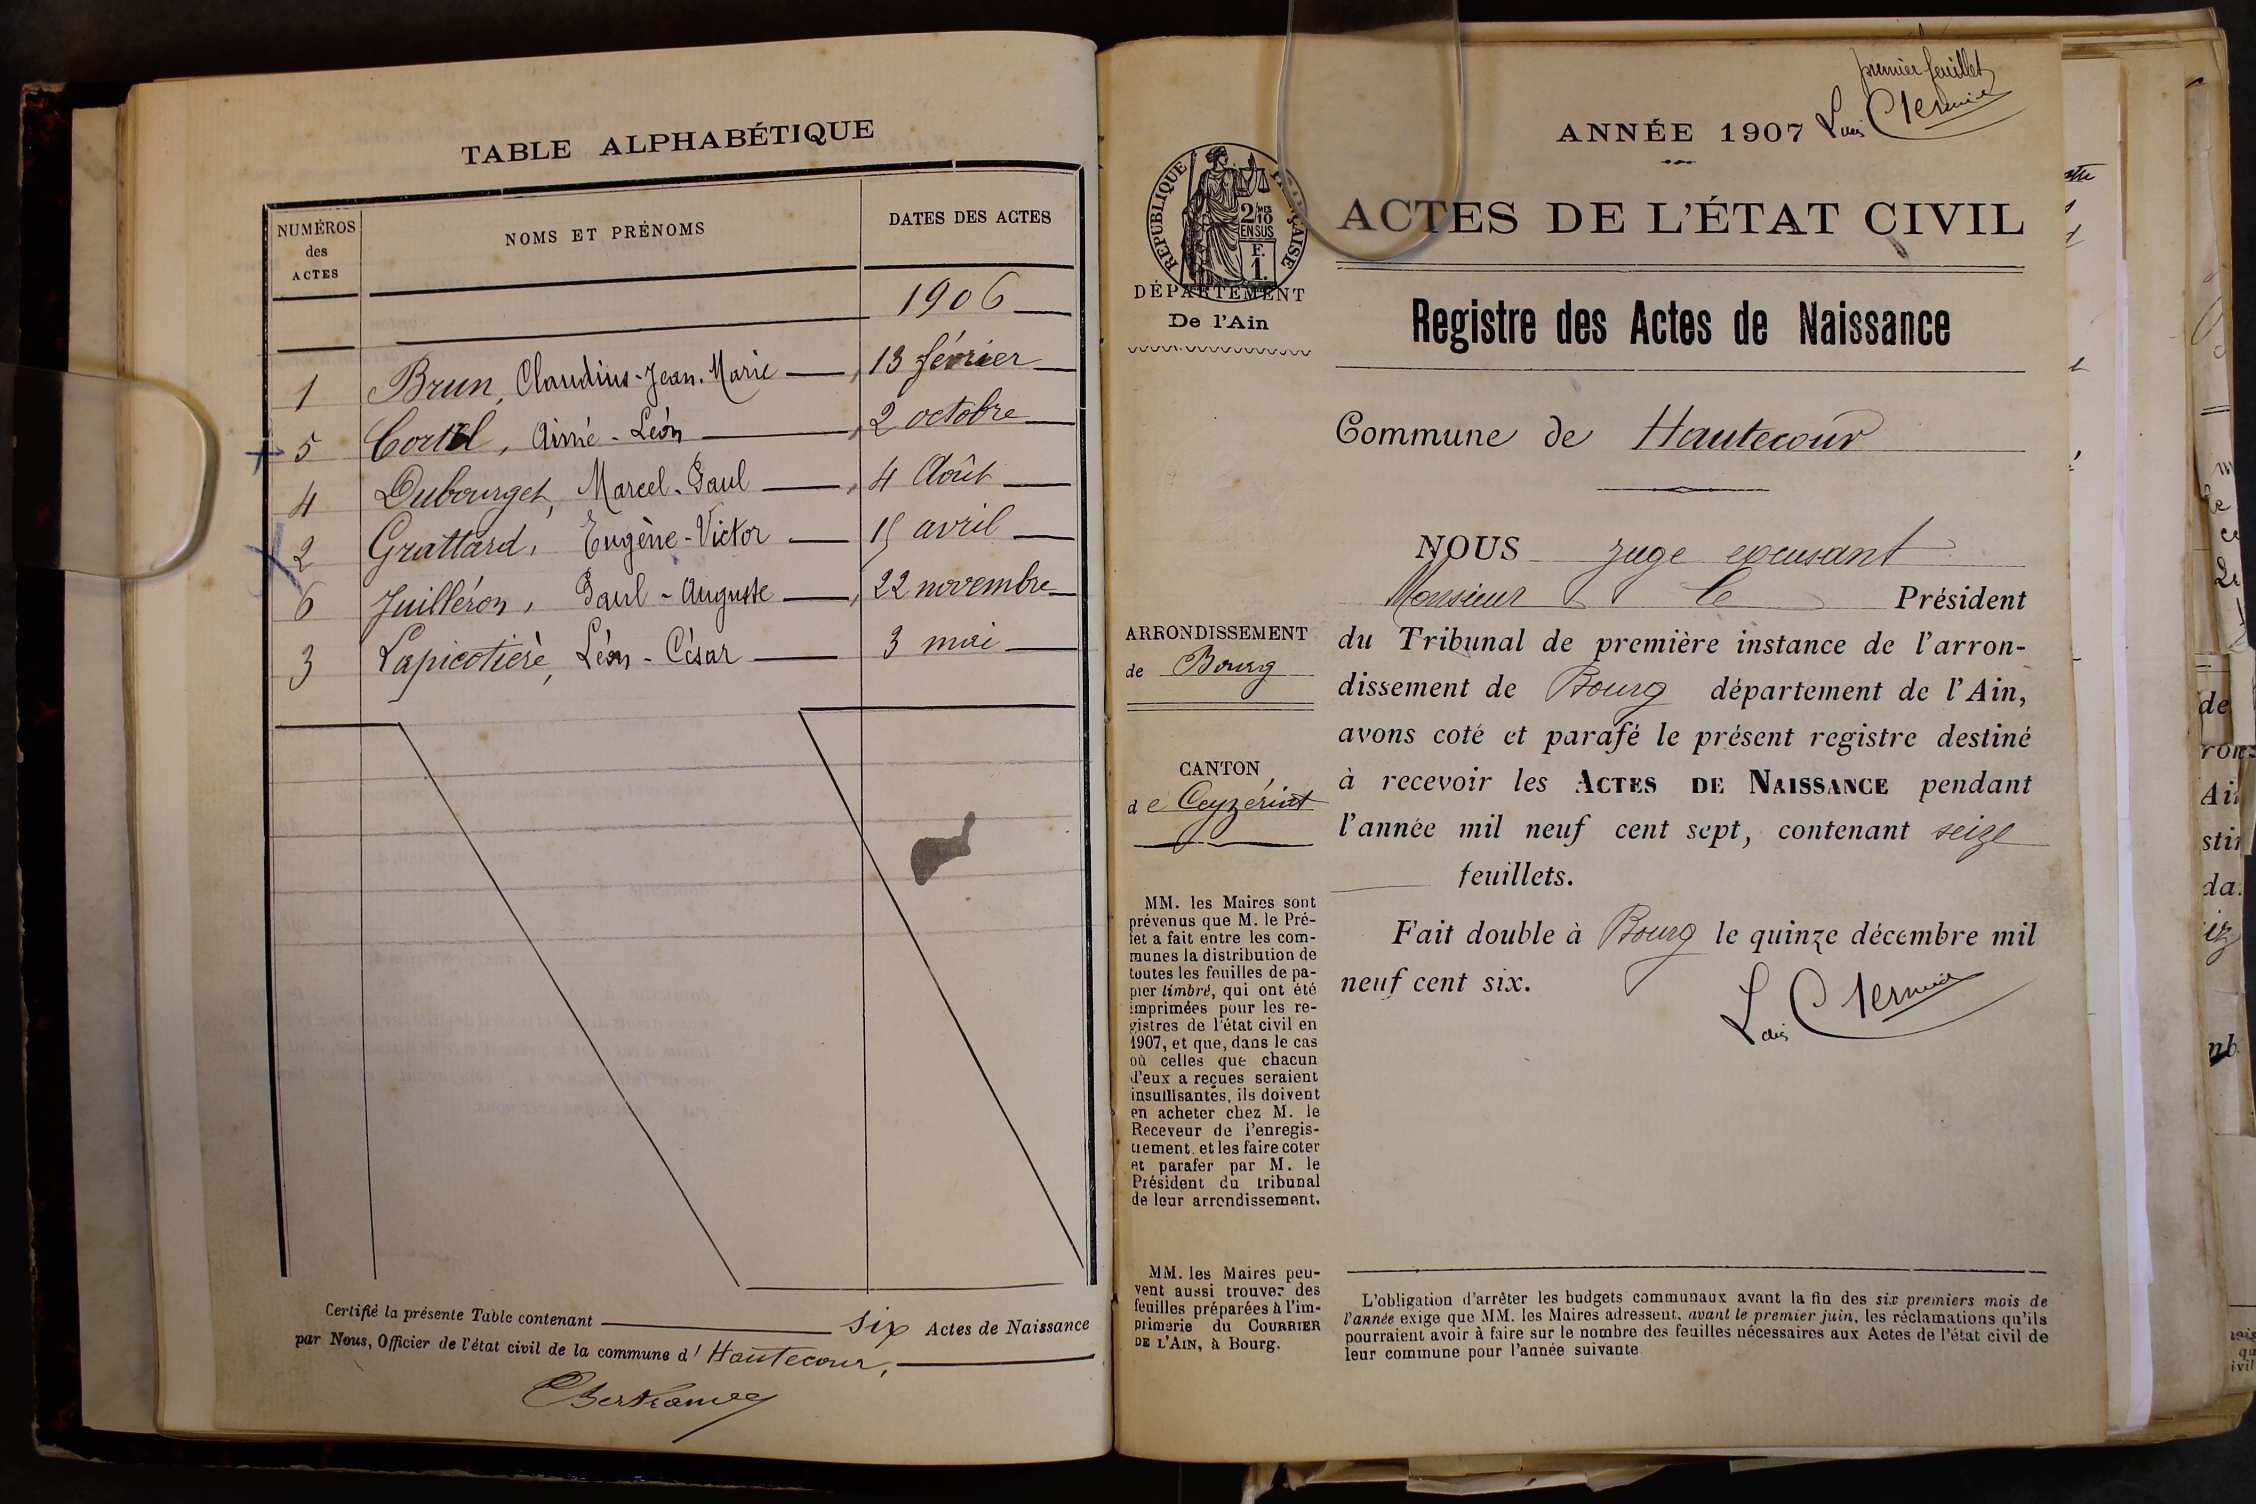 TABLE ALPHABÉTIQUE
NUMÉROS des ACTES
NOMS ET PRÉNOMS
DATES DES ACTES
1906
1 Brun, Claudius-Jean-Marie 13 février
5 Aimé-Léon 2 octobre
4 Dubourget, Marcel-Paul 4 Août
2 Grattard, Eugène-Victor 15 avril
6 Juilléron, Paul-Auguste 22 novembre
3 Lapicotière, Léon-César 3 mai
Certifié la présente Table contenant six Actes de Naissance
par Nous, Officier de l'état civil de la commune d' Hautecour,
premier feuillet
Louis
ANNÉE 1907
RÉPUBLIQUE FRANÇAISE
2/10 MES
EN SUS
F.
1.
ACTES DE L'ÉTAT CIVIL
DÉPARTEMENT
De l'Ain
Registre des Actes de Naissance
Commune de Hautecour
NOUS juge excusant
Monsieur le Président
ARRONDISSEMENT
de Bourg
du Tribunal de première instance de l'arron-
dissement de Bourg département de l'Ain,
avons coté et parafé le présent registre destiné
CANTON
de Ceyzériat
à recevoir les ACTES DE NAISSANCE pendant
l'année mil neuf cent sept, contenant seize
feuillets.
Fait double à Bourg le quinze décembre mil
neuf cent six.
Louis
MM. les Maires sont
prévenus que M. le Pré-
fet a fait entre les com-
munes la distribution de
toutes les feuilles de pa-
pier timbré, qui ont été
imprimées pour les re-
gistres de l'état civil en
1907, et que, dans le cas
où celles que chacun
d'eux a reçues seraient
insuffisantes, ils doivent
en acheter chez M. le
Receveur de l'enregis-
trement, et les faire coter
et parafer par M. le
Président du tribunal
de leur arrondissement.
MM. les Maires peu-
vent aussi trouver des
feuilles préparées à l'im-
primerie du COURRIER
DE L'AIN, à Bourg.
L'obligation d'arrêter les budgets communaux avant la fin des six premiers mois de
l'année exige que MM. les Maires adressent, avant le premier juin, les réclamations qu'ils
pourraient avoir à faire sur le nombre des feuilles nécessaires aux Actes de l'état civil de
leur commune pour l'année suivante.